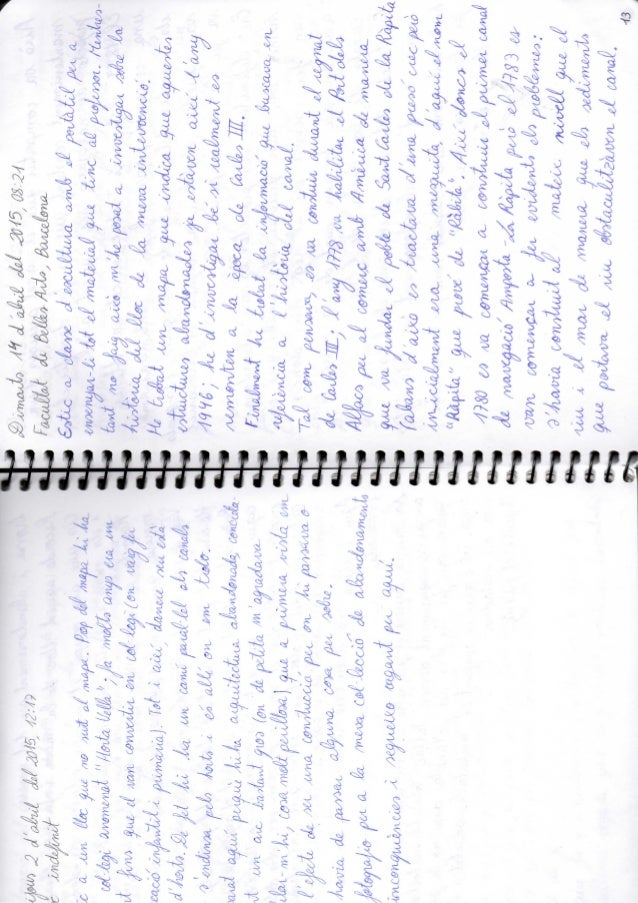 ijous 2 d'abril del 2015, 12:17
c indefinit
c a un lloc que no surt al mapa. Prop del mapa hi ha
col·legi anomenat "Horta Vella"; fa molts anys era un
t fins que el van convertir en col·legi (on vaig fer
cació infantil i primària). Tot i així, darrere seu està
d'horts. De fet hi ha un camí paral·lel als canals
s'endinsa pels horts i és allí on em trobo.
parat aquí perquè hi ha arquitectura abandonada, concreta-
t un arc bastant gros (on de petita m'agradava
ilar-m'hi, cosa molt perillosa) que a primera vista em
l'efecte de ser una construcció per on hi passava o
havia de passar alguna cosa per sobre.
fotografio per a la meva col·lecció de abandonaments
incongruències i segueixo vagant per aquí.
Dimarts 14 d'abril del 2015, 08:21
Facultat de Belles Arts, Barcelona
Estic a classe d'escultura amb el portàtil per a
ensenyar-li tot el material que tinc al professor. Mentres-
tant no faig això m'he posat a investigar sobre la
història del lloc de la meva intervenció.
He trobat un mapa que indica que aquestes
estructures abandonades ja estàven així l'any
1946; he d'investigar bé si realment es
remonten a la època de Carles III.
Finalment he trobat la informació que buscava en
referència a l'història del canal.
Tal com pensava, es va construir durant el regnat
de Carles III; l'any 1778 va habilitar el Port dels
Alfacs per al comerç amb Amèrica de manera
que va fundar el poble de Sant Carles de la Ràpita
(abans d'això es tractava d'una presó crec però
inicialment era una mesquita, d'aquí el nom
"Ràpita" que prové de "Ràbita". Així doncs el
1780 es va començar a construir el primer canal
de navegació Amposta - La Ràpita però el 1783 es
van començar a fer evidents els problemes:
s'havia construït al mateix nivell que el
riu i el mar de manera que els sediments
que portava el riu obstaculitzàven el canal.
13